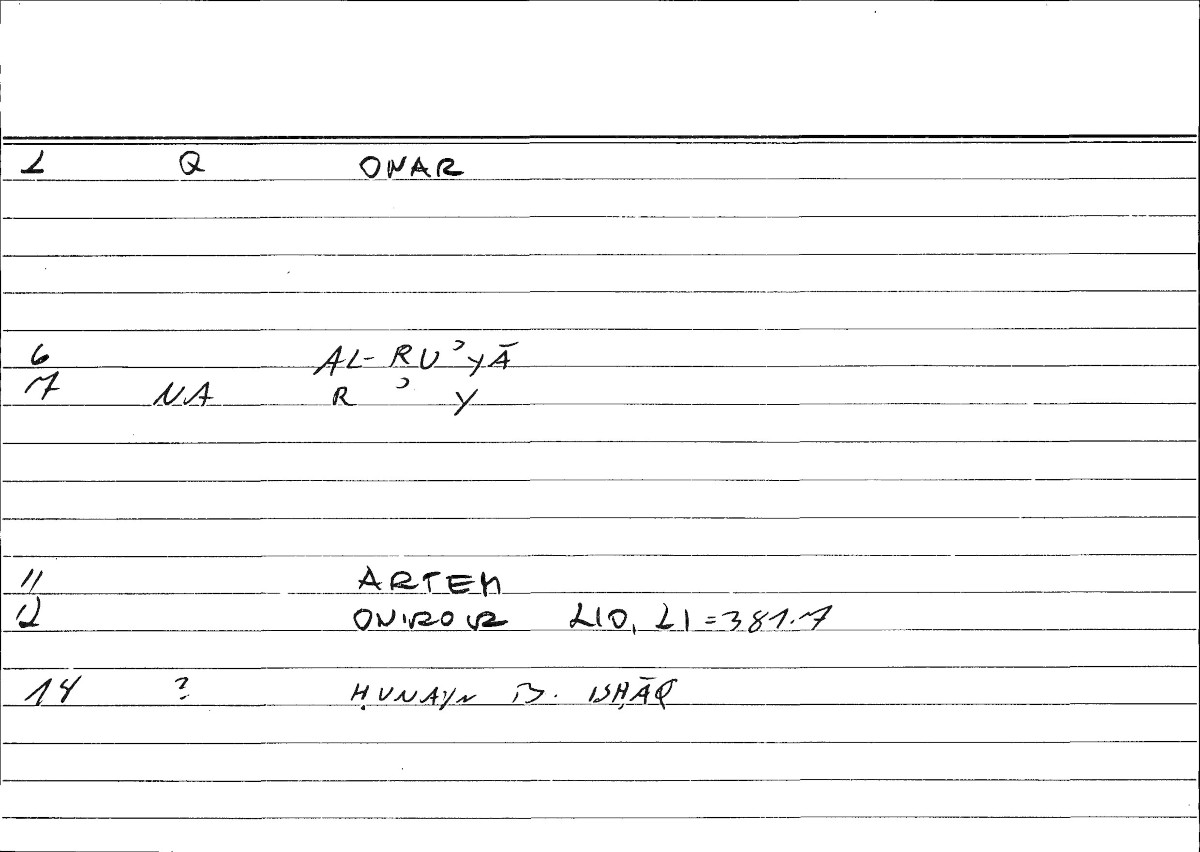 2 Q ONAR
6 AL-RUʾYĀ
7 NA R ʾ Y
11 ARTEM
12 ONIROIR 210, 21=381.7
14 ? ḤUNAYN B. ISḤĀQ